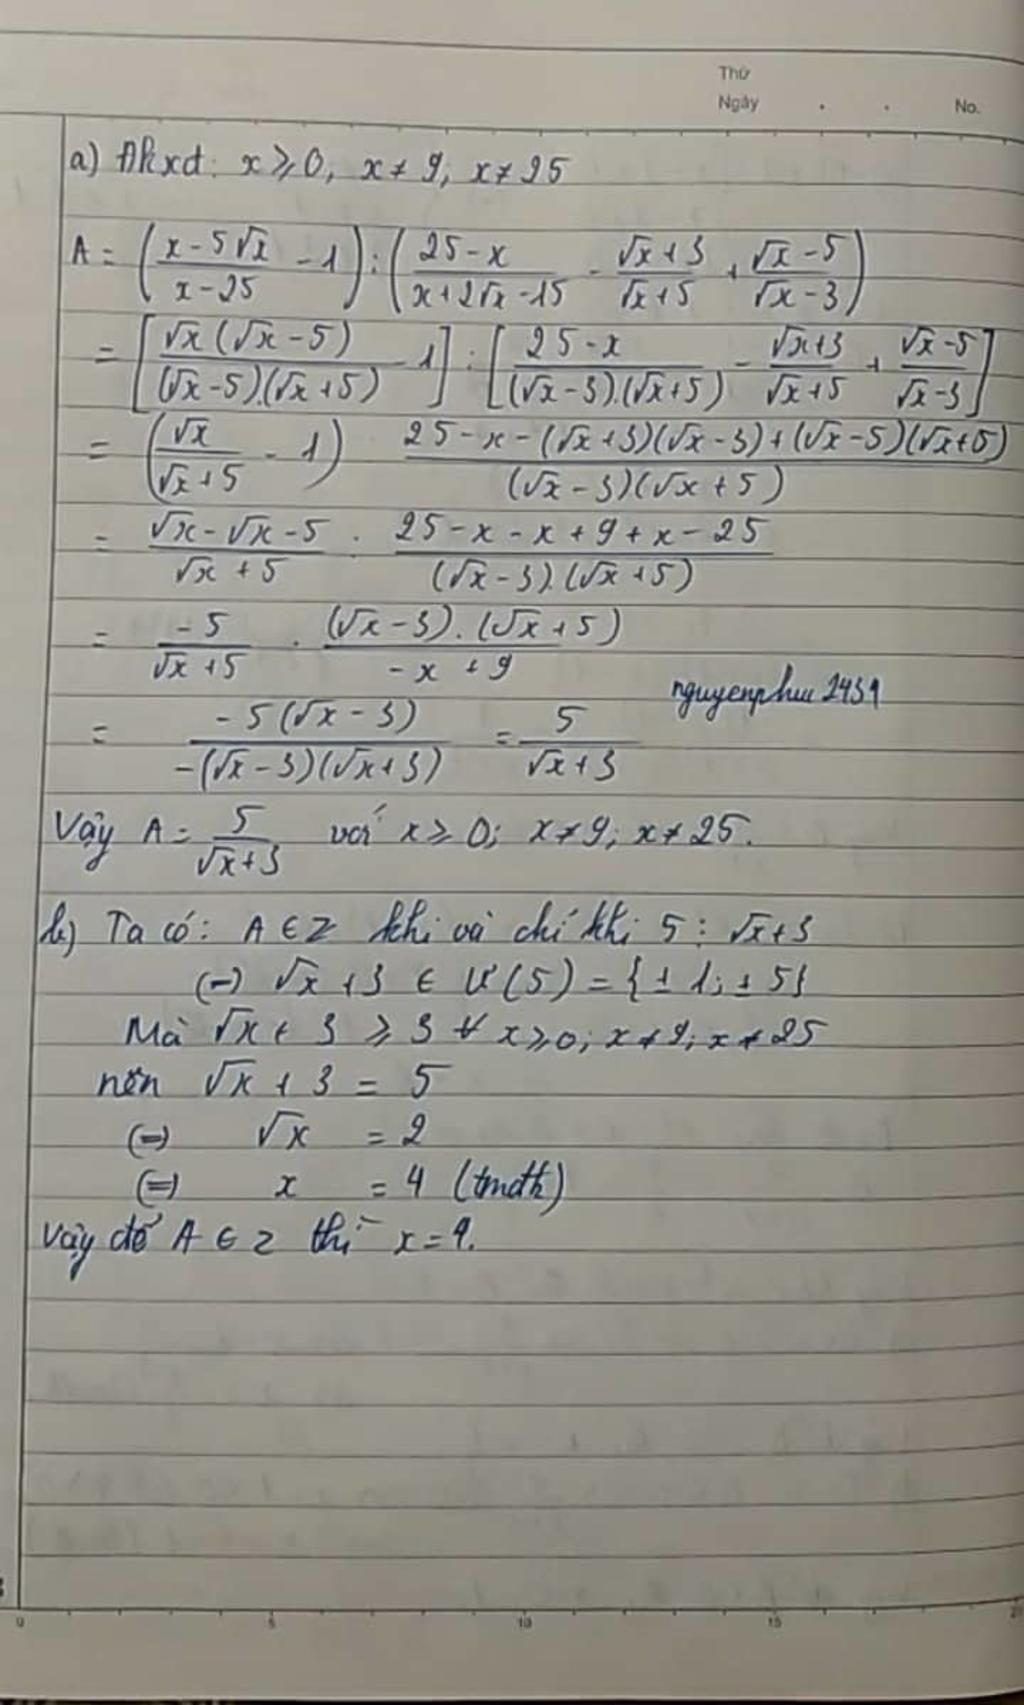 Thứ
Ngày . . No.
a) Đkxđ: x ≥ 0, x ≠ 9, x ≠ 25
A = ((x - 5√x)/(x - 25) - 1) : ((25 - x)/(x + 2√x - 15) - (√x + 3)/(√x + 5) + (√x - 5)/(√x - 3))
= [√x(√x - 5)/((√x - 5).(√x + 5)) - 1] : [(25 - x)/((√x - 3).(√x + 5)) - (√x + 3)/(√x + 5) + (√x - 5)/(√x - 3)]
= (√x/(√x + 5) - 1) (25 - x - (√x + 3)(√x - 3) + (√x - 5)(√x + 5))/((√x - 3)(√x + 5))
= (√x - √x - 5)/(√x + 5) : (25 - x - x + 9 + x - 25)/((√x - 3).(√x + 5))
= -5/(√x + 5) . ((√x - 3).(√x + 5))/(-x + 9)
nguyenphuc2431
= -5(√x - 3)/(-(√x - 3)(√x + 3)) = 5/(√x + 3)
Vậy A = 5/(√x + 3) với x ≥ 0; x ≠ 9; x ≠ 25.
b) Ta có: A ∈ Z khi và chỉ khi 5 ⋮ √x + 3
(=) √x + 3 ∈ Ư(5) = {± 1; ± 5}
Mà √x + 3 ≥ 3 ∀ x ≥ 0; x ≠ 9; x ≠ 25
nên √x + 3 = 5
(=) √x = 2
(=) x = 4 (tmđk)
Vậy để A ∈ Z thì x = 4.
0 5 10 15 20